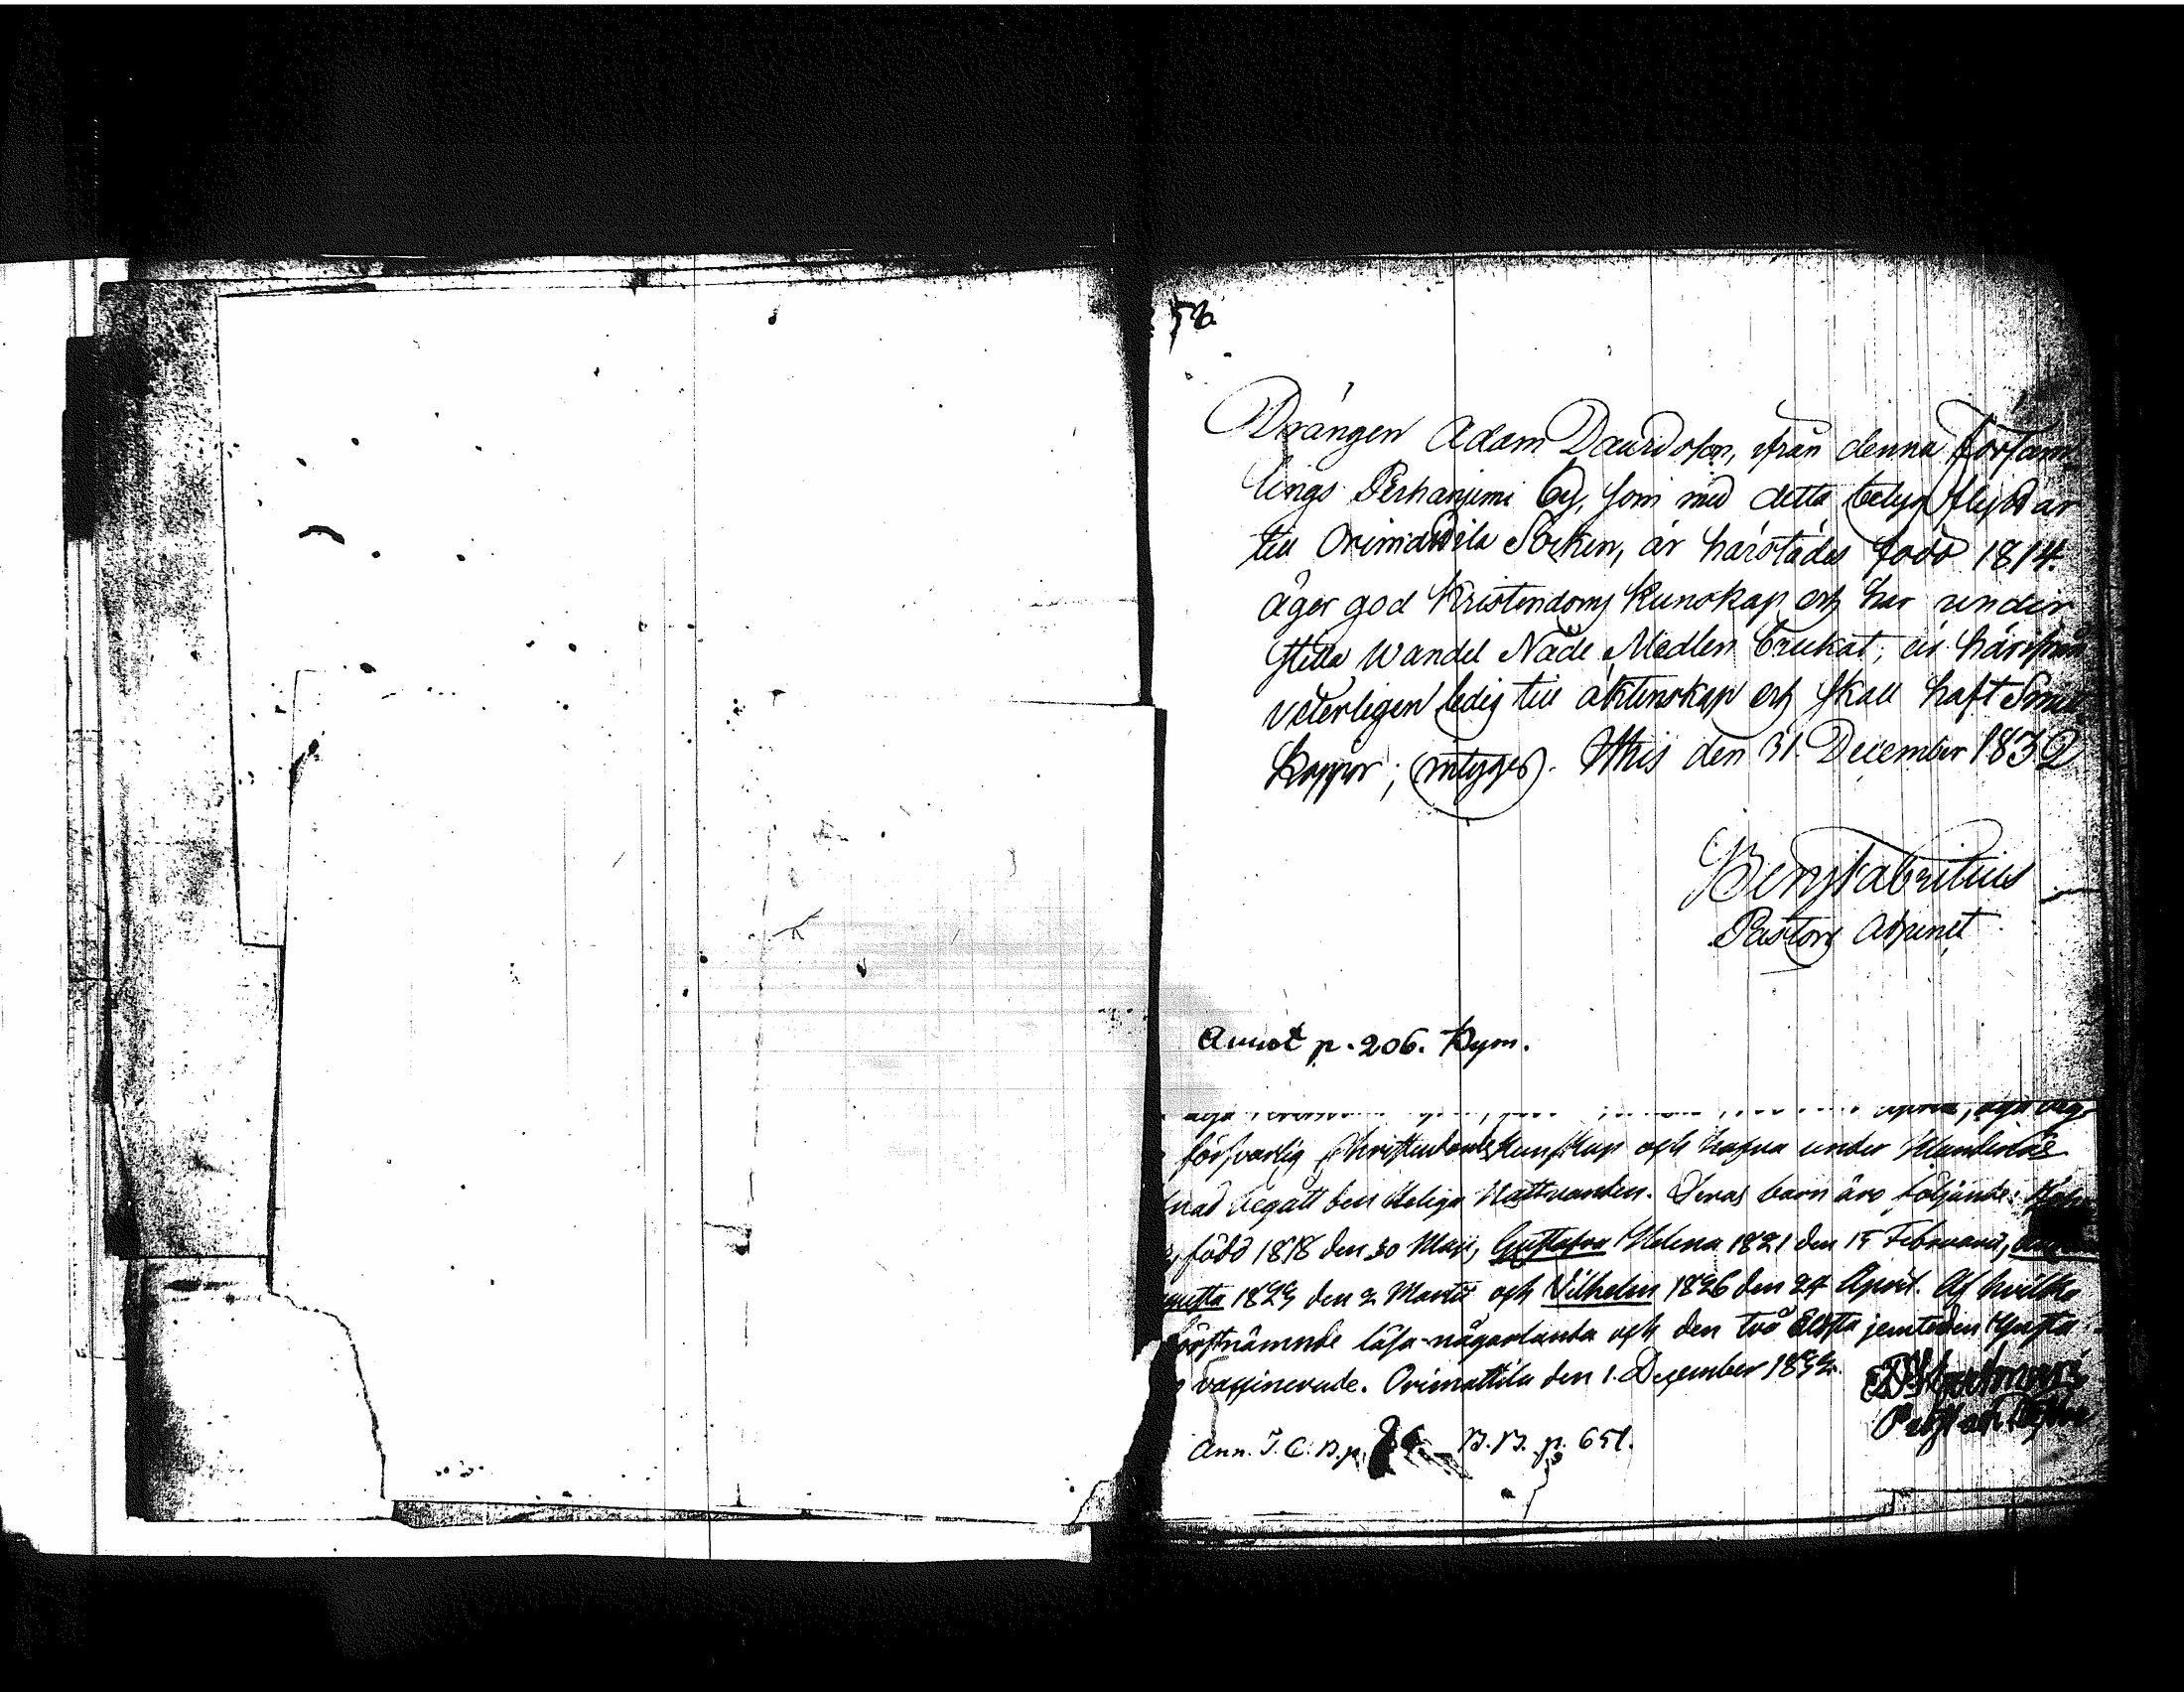 Drängen Adam Davidsson, ifrån denna Försam-
lings Perhanjemi By, som med detta betyg flyttar
till Orimattila Socken, är härstädes född 1814.
äger god Kristendoms Kunskap och har under
stilla Wandel Nåde Medlen brukat; är härifrån
veterligen ledig till äktenskap och skall haft Små
koppor; intygas. Ithis den 31 December 1832
Fabritius
Pastors Adjunct
Annot p. 206. Kym.
försvarlig Christendoms kunskap och hafva under
begått den Heliga Nattvarden. Deras barn äro följande:
född 1818 den 30 Maji, Gustafva Helena 1821 den 15 Februarii,
den 2 Martii och Vilhelm 1826 den 24 April. Af hvilka
förstnämnde läsa någorlunda och den två äldsta jemte den
vaccinerade. Orimattila den 1. December 1832.
Ann. I. C. B. p. B. B. p. 651.